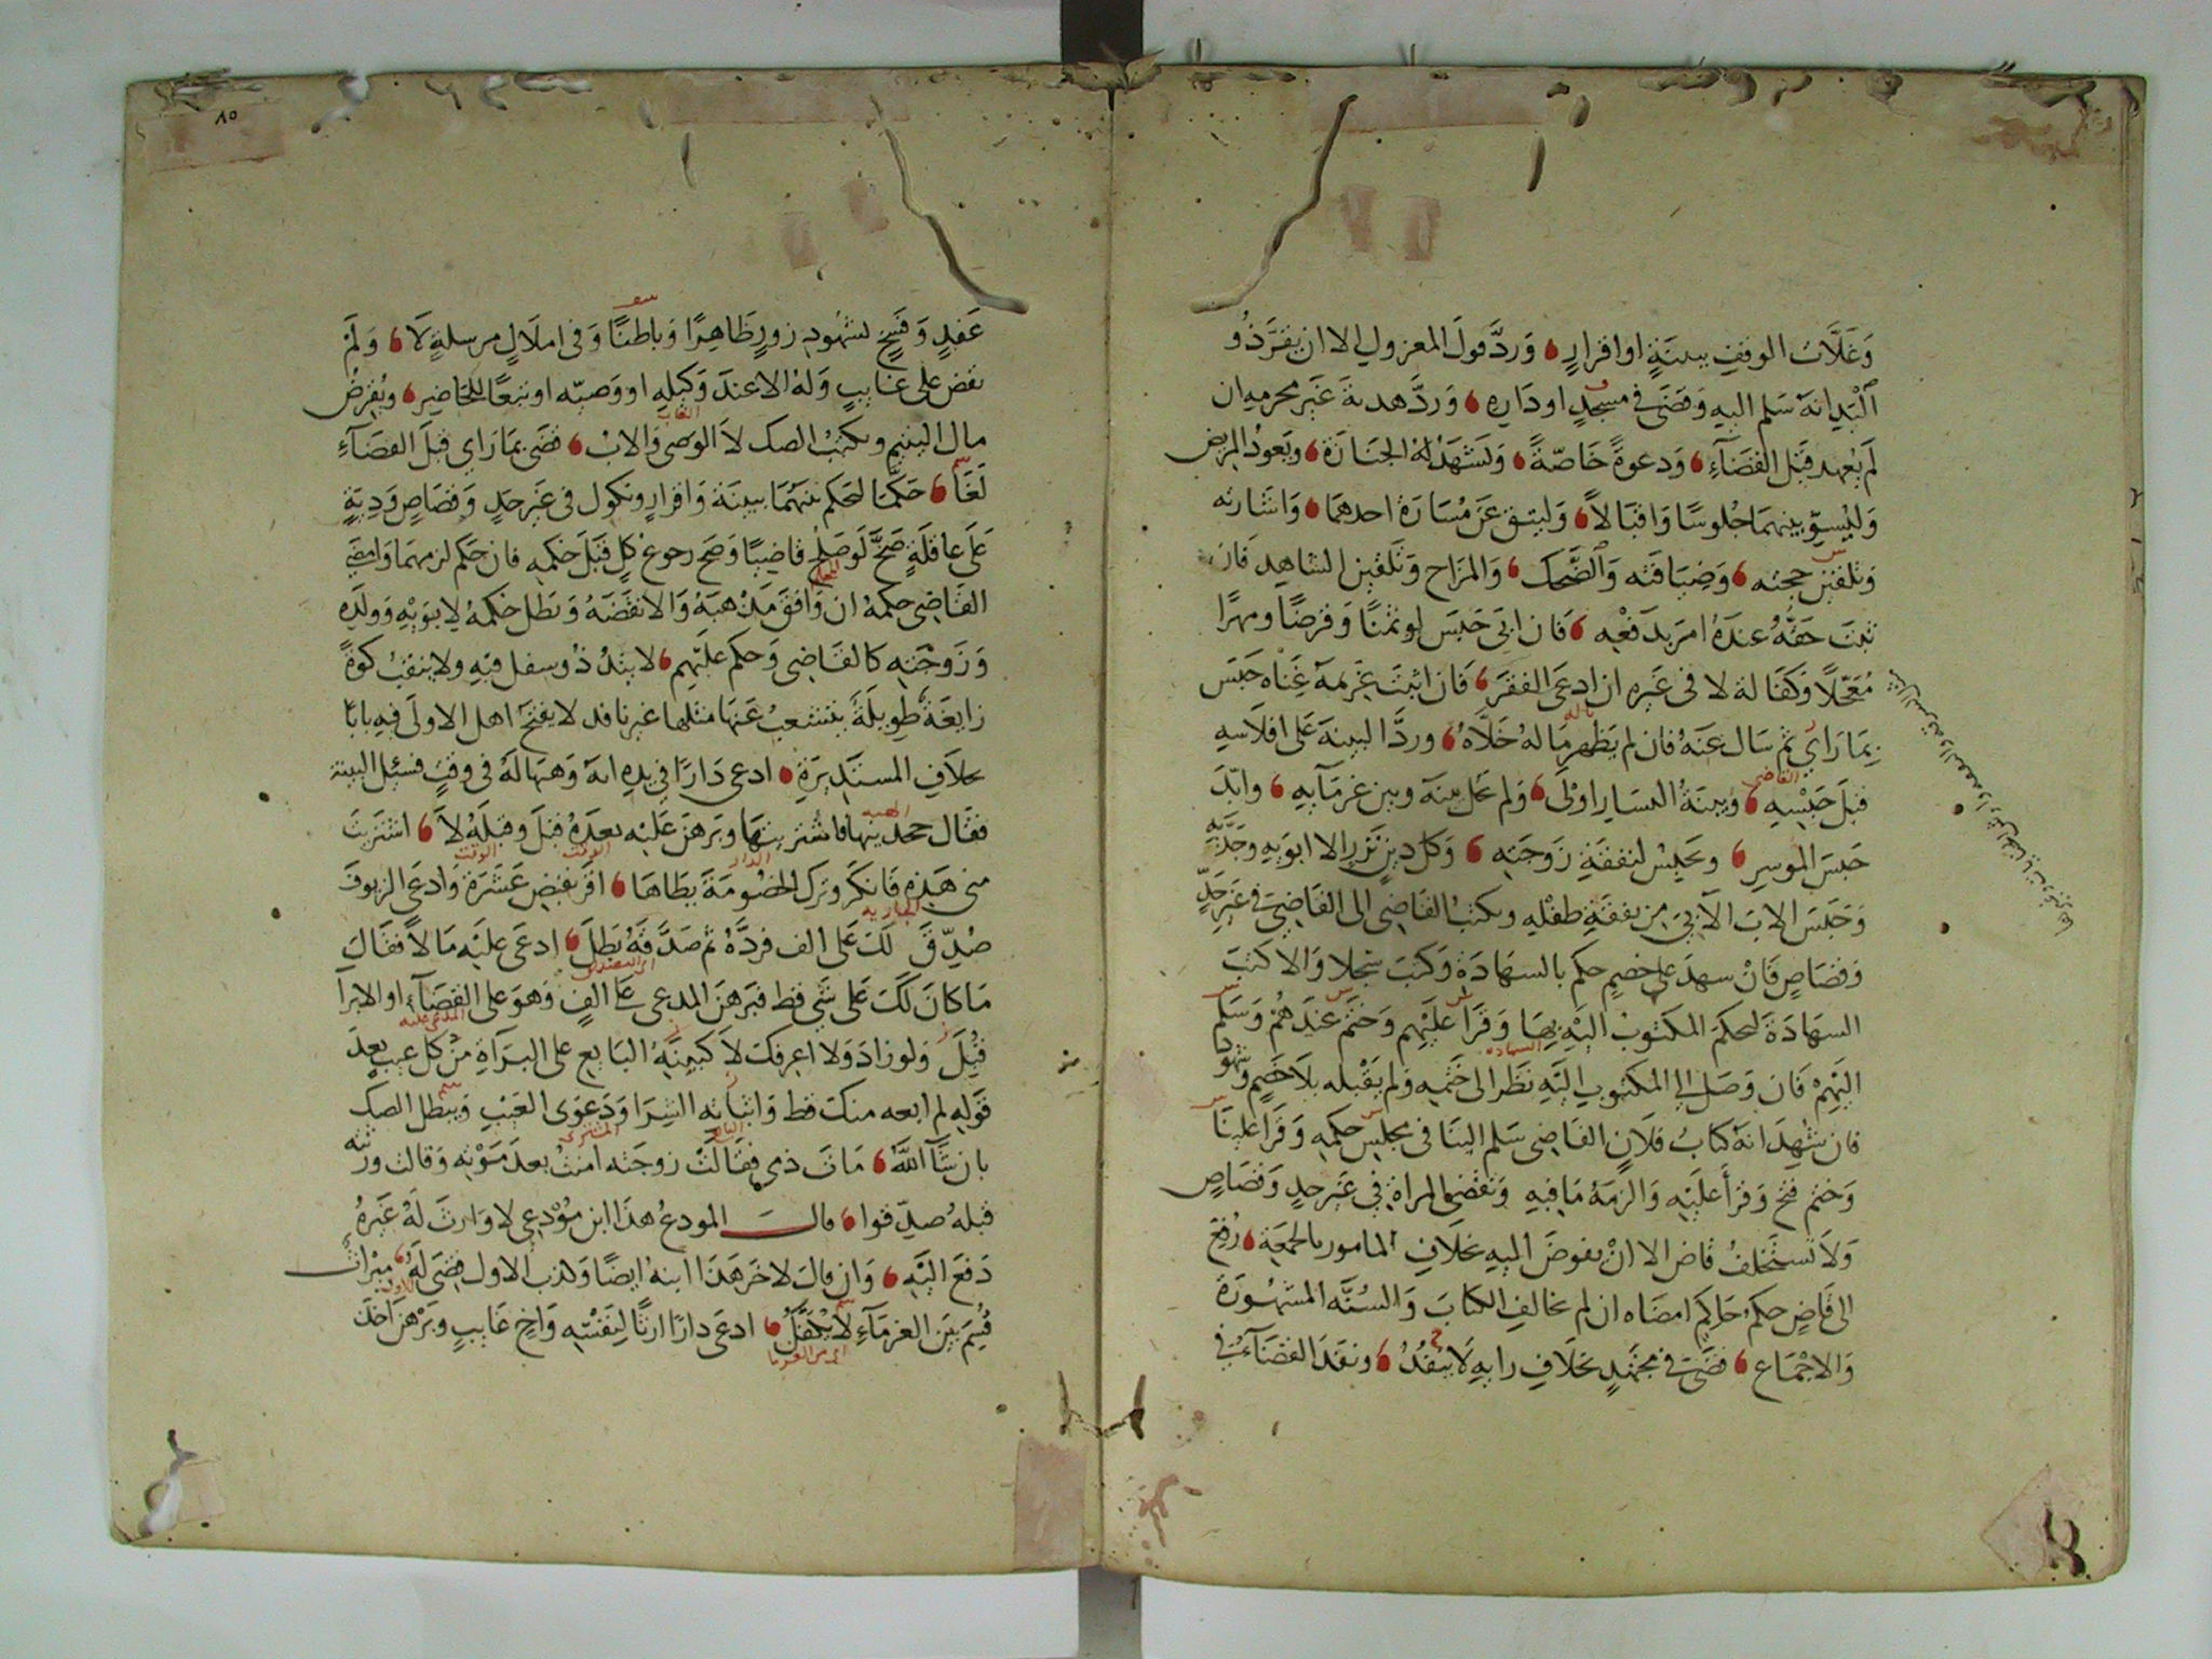 وَغَلَّات الوقفِ ببينَةٍ او اقرارٍ وَرَدَّ قولَ المعزولِ الا ان يقرَّ ذو
اَلْيَدِ انهُ سَلم اليهِ وَقضَى في مسجدٍ او دَارِهِ وَرَدَّ هديةَ غَيرَ محرمهِ ان
لم يُعهد قَبْل القضَآءِ وَدعوةً خَاصّةً وَيَشهَدُ الجنَازة وَيَعودُ المريض
وَليُسوِّ بينهمَا جُلوسًا وَاقبَالاً وَليتق عَنْ مُسَارَة احدهمَا وَاشَارته
وَتلقين حجته وَضِيَافَته وَالضَّحِكَ وَالمزَاح وَتَلقين الشاهِد فَان
ثبتَ حَقُّهُ عندَهُ امرَ بدَفْعِهِ فَان ابَى حَبَسَ لو ثمنًا وَقرضًا ومهرًا
مُعَجّلاً وَكفَالة لا فى غَيرهِ ان ادعَى الفقرَ فَان اثبتَ غَريمهُ غِنَاهُ حَبَسَ
بِمَا رَاى ثم سَال عنهُ فان لم يَظهر مَا لهُ خَلّاهُ وردَّ البينة عَلى افلَاسِهِ
قبلَ حَبْسِهِ وَبينةُ اليسَارِ اوْلَى وَلم يحَل بينَهُ وبين غرمَآيهِ وابّدَ
حَبسَ الموسرِ وَيحبسُ لنفقةِ زَوجَتهِ وَكل دين نَزر الا ابويهِ وجَدَّيه
وَحَبسَ الابَ الآبيَ مِن نفقَةِ طفلهِ ويكتبُ القَاضِى الى القَاضِى فى غَير حَدٍّ
وقصَاصٍ فَانْ شهدَ على خصمٍ حكم بالشهَادَةِ وَكتبَ سجلا وَالا كتب
الشهَادَةَ ليحكمَ المكتوبُ اليْهِ بِهَا وَقرَأ عليْهِم وَختَم عندَهُم وَسَلم
اليْهِمْ فَان وَصَل الى المكتوبِ اليْهِ نَظر الى ختمهِ وَلم يَقْبله بلَا خصمٍ وَشهود
فان شهِدَا انهُ كتابُ فلَان القَاضِى سَلم الينَا فى مجلسِ حكمهِ وَقرَا علينَا
وَختم فتح وَقرأ عليْهِ وَالزمَهُ مَا فيهِ وَتقضِى المراةُ فى غَير حدٍ وَقصَاصٍ
وَلَا تستَخلفُ قاض الا انْ يفوضَ اليهِ بخلَافِ المامور بالجمعَةِ رُفعَ
الى قَاضٍ حكمُ حَاكِم امضَاه ان لم يخالفِ الكتابَ وَالسُنَّه المشهُورَة
وَالاجْمَاع قضَى فى مجتهدٍ بخلَافِ رايهِ لَا ينفُذُ ونفذَ القضَآءُ فى
عَقدٍ وَفَسخٍ لشهُودِ زورٍ ظَاهِرًا وَباطنًا وَفى املَاكٍ مرسلةٍ لَا وَلَمْ
يقض على غايبٍ وَلهُ الا عندَ وَكيلهِ او وَصيّه او تبعًا للحَاضِر وَيُقرضُ
مال اليتيم ويكتبُ الصك لَا الوَصى وَالابُ قضَى بمَا رَاى قبْلَ القضَآءِ
لَغَا حَكَّمَا ليحكم بينَهُمَا ببينَة وَاقرارٍ ونكول فى غَير حدٍ وَقصَاصٍ وَدِيَةٍ
عَلَى عَاقلَةٍ صَحَّ لَو صَلح قَاضيًا وَصَح رجوعُ كلٍ قَبلَ حُكمهِ فان حَكم لزمهمَا وَامضَى
القَاضِى حكمهُ ان وَافقَ مَذهبَهُ وَالا نقضَهُ وَبطلَ حُكمهُ لِابوَيْهِ وَولَدِهِ
وَزَوجَتهِ كالقَاضِى وَحكم عليْهِم لا يتدُ ذو سفل فيهِ ولا ينقبُ كوةً
زايغَةٌ طوِيلَةً يتشعبُ عَنهَا مثلها غير نافد لا يفتحُ اهل الاولَى فيهِ بابًا
بخلَافِ المستَدِيرَةِ ادعى دَارًا فى يدِهِ انهُ وَهبَهَا لهُ فى وقتٍ فسئِل البينة
فقَال جحدَنيهَا فاشتريتهَا وبَرهنَ عَليْه بعدَهُ قبلَ وَقبلَهُ لَا اشتريتَ
منى هَذِهِ فَانكرَ وَترك الخصُومَة يطَاهَا اقرَّ بقبضِ عَشَرَةِ وَادعَى الزيوفَ
صُدِّقَ لكَ عَلى الف فردَّهُ ثم صَدَّقَهُ بَطلَ ادعَى عليْه مَالاً فقَالَ
مَا كانَ لكَ عَلى شَى قط فبَرهنَ المدعى عَلى الفٍ وَهوَ على القضَآءِ او الابرا
قُبلَ وَلو زادَ وَلا اعرفكَ لَا كبيِنَةِ البَايع على البَرآةِ منْ كل عيبٍ بعدَ
قوَلهِ لم ابعه منكَ قط وَاثباتِه الشِرَا وَدَعوَى العَيْبِ وَيبطل الصك
بان شَآ اللّهُ مَاتَ ذمى فقَالَتْ زوجَته اسلمتُ بعدَ مَوْتهِ وَقالت ورثته
قبلهُ صدِّقوا قال المودعُ هذَا ابن مُوْدِعِى لا وَارثَ لهُ غَيرهُ
دَفعَ اليْهِ وَان قالَ لاخرَ هَذَا ابنهُ ايضًا وكذب الاول قضِى لهُ ميراثٌ
قُسِمَ بيَن الغرمَآءِ لَا يُكفلُ ادعَى دارًا ارثًا لِنفسهِ وَاخٍ غَايبٍ وَبَرْهنَ اخذَ
٨٥